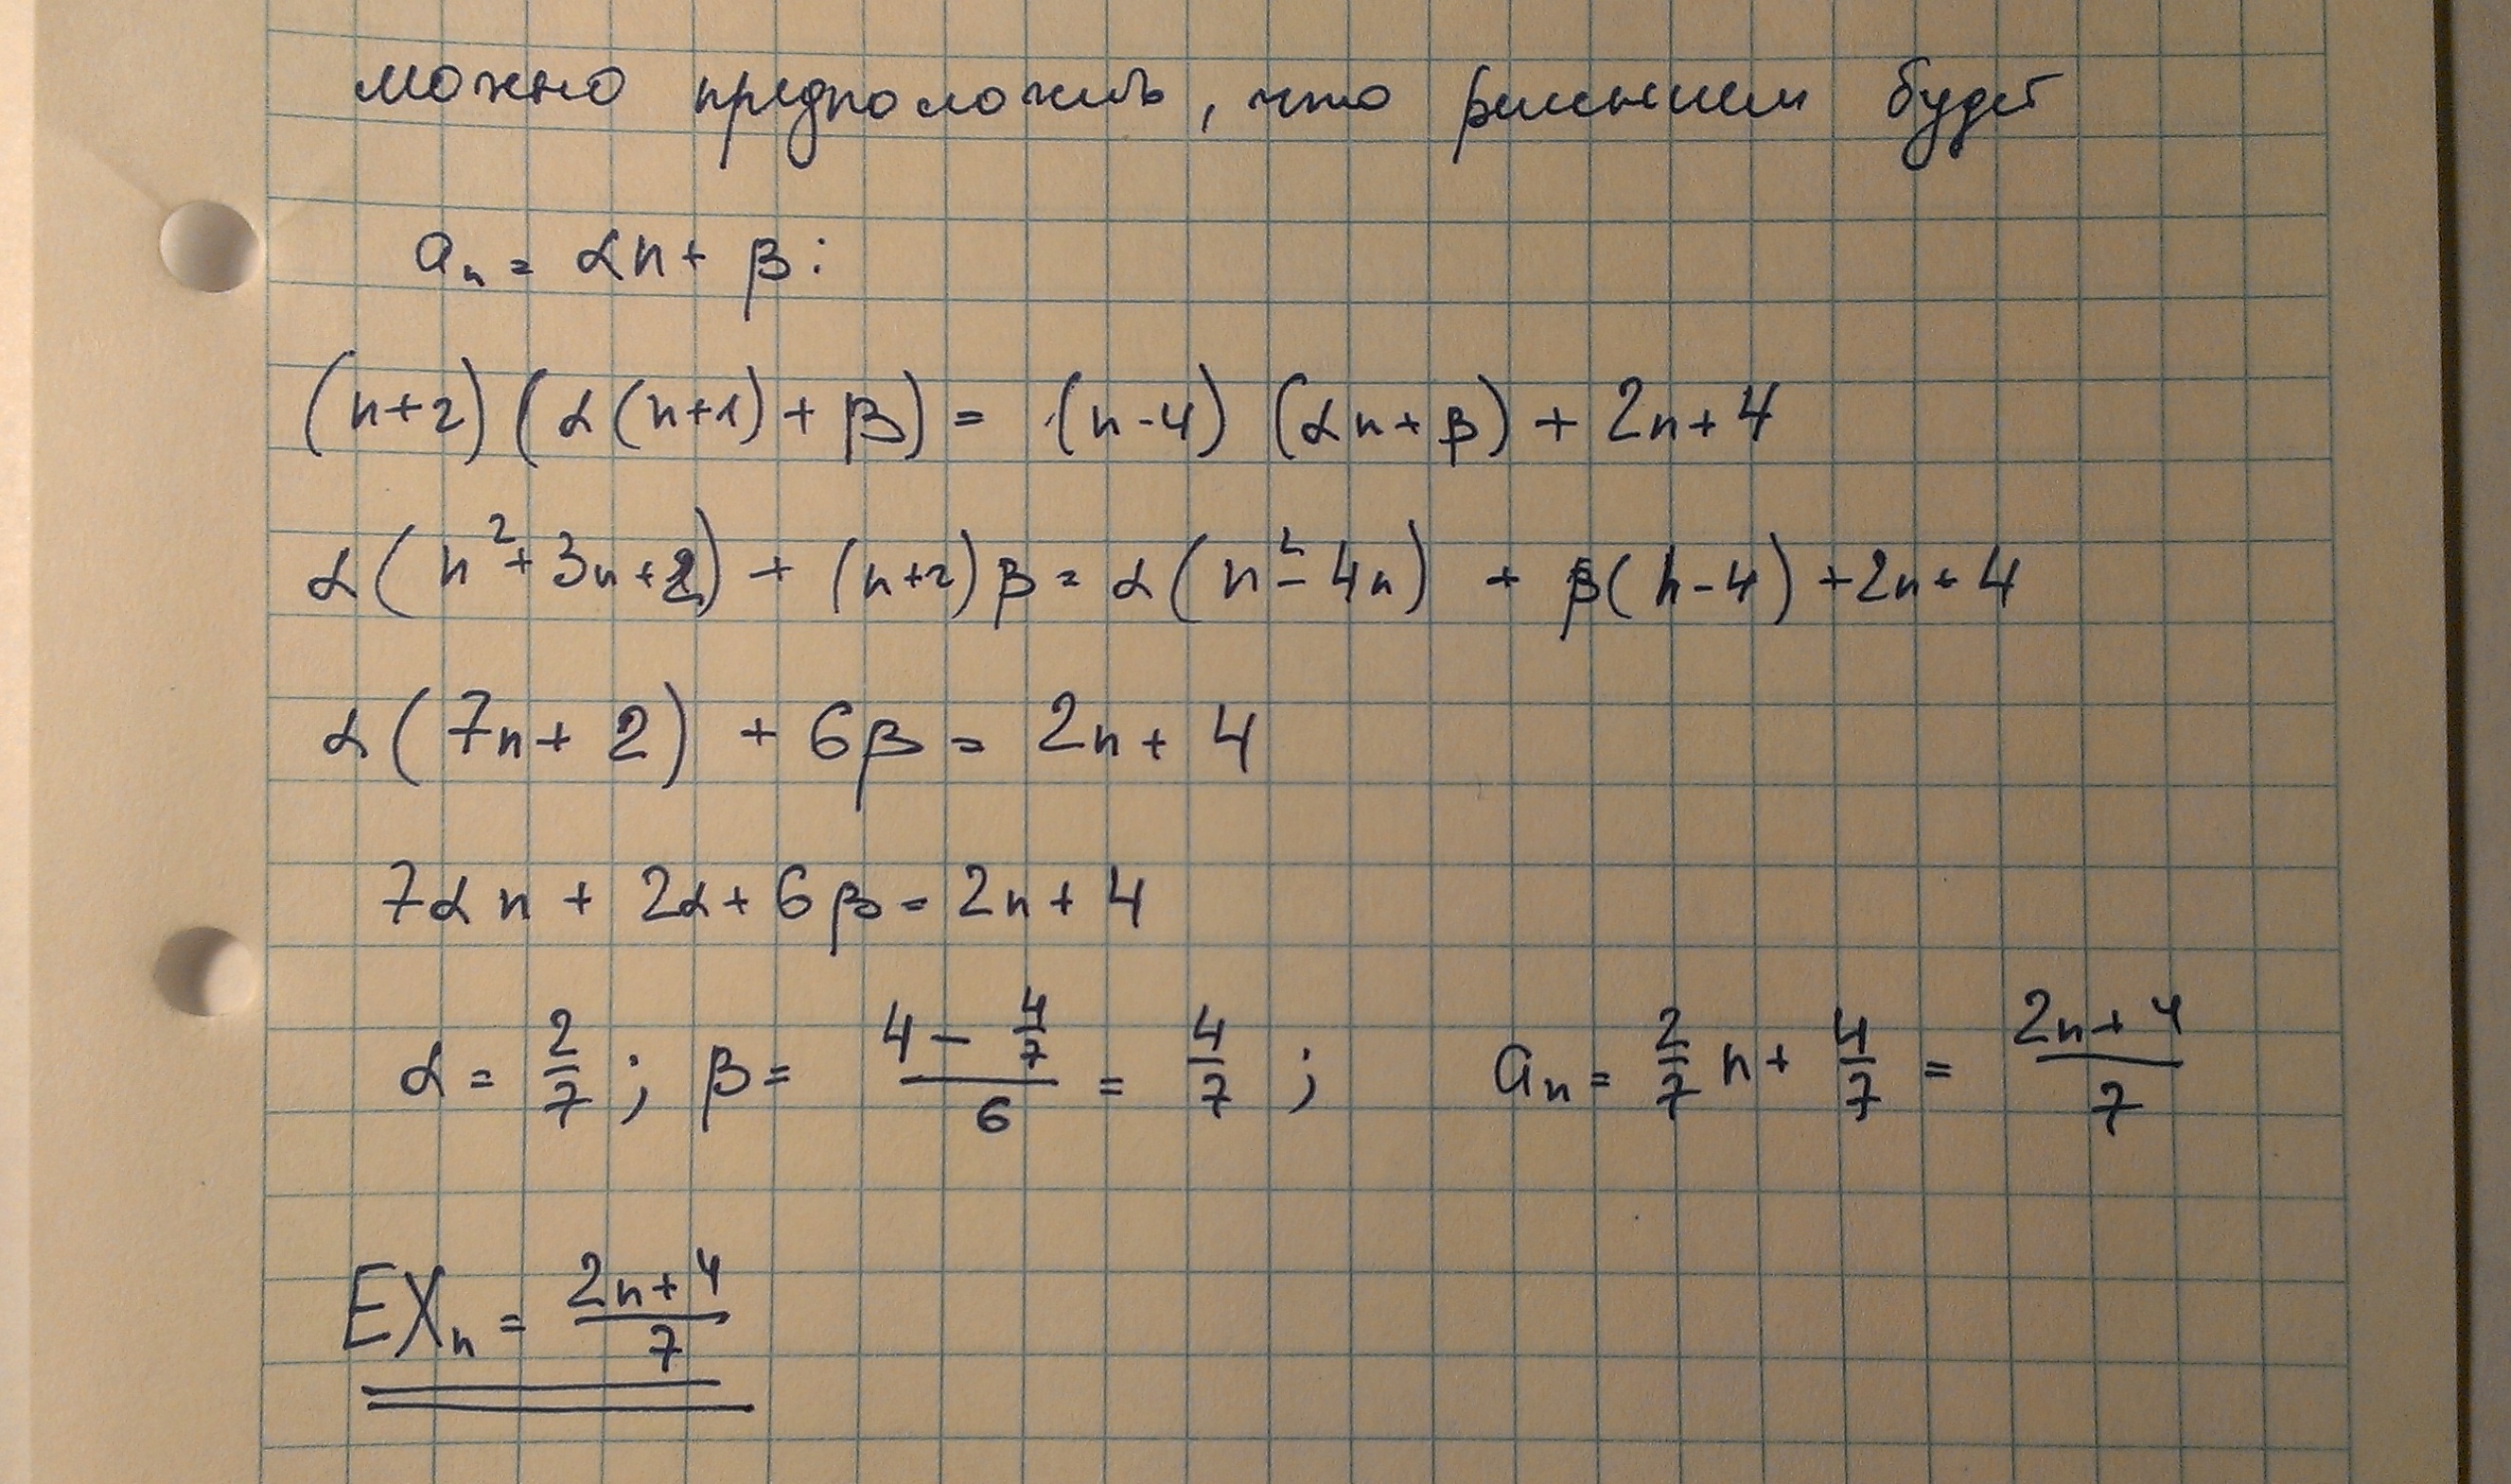 можно предположить, что решением будет
aₙ = αn + β:
(n+2)(α(n+1) + β) = (n-4)(αn + β) + 2n + 4
α(n² + 3n + 2) + (n+2)β = α(n² - 4n) + β(n-4) + 2n + 4
α(7n + 2) + 6β = 2n + 4
7αn + 2α + 6β = 2n + 4
α = 2/7 ; β = (4 - 4/7)/6 = 4/7 ; aₙ = 2/7 n + 4/7 = (2n + 4)/7
EXₙ = (2n + 4)/7